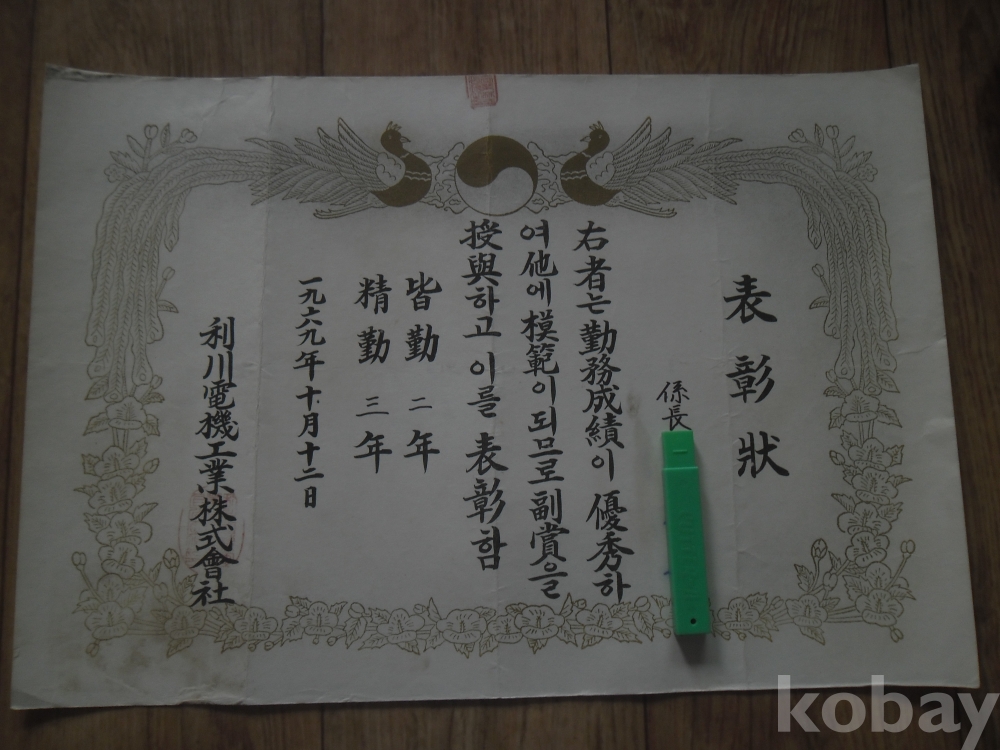 表彰狀
係長
右者는 勤務成績이 優秀하
여 他에 模範이 되므로 副賞을
授與하고 이를 表彰함
皆勤 二年
精勤 三年
一九六九年 十月 十二日
利川電機工業株式會社
kobay